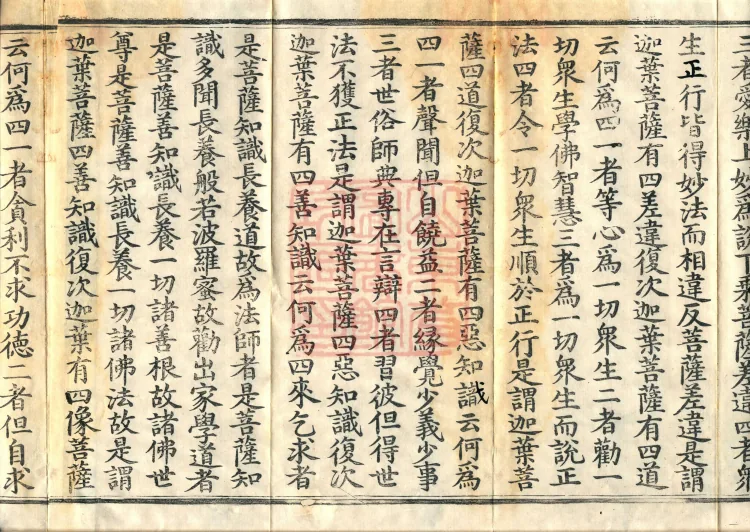 三者愛樂上妙爲說下乘菩薩差違四者衆
生正行皆得妙法而相違反菩薩差違是謂
迦葉菩薩有四差違復次迦葉菩薩有四道
云何爲四一者等心爲一切衆生二者勸一
切衆生學佛智慧三者爲一切衆生而說正
法四者令一切衆生順於正行是謂迦葉菩
薩四道復次迦葉菩薩有四惡知識云何爲
四一者聲聞但自饒益二者緣覺少義少事
三者世俗師典專在言辯四者習彼但得世
法不獲正法是謂迦葉菩薩四惡知識復次
迦葉菩薩有四善知識云何爲四來乞求者
是菩薩知識長養道故爲法師者是菩薩知
識多聞長養般若波羅蜜故勸出家學道者
是菩薩善知識長養一切諸善根故諸佛世
尊是菩薩善知識長養一切諸佛法故是謂
迦葉菩薩四善知識復次迦葉有四像菩薩
云何爲四一者貪利不求功德二者但自求